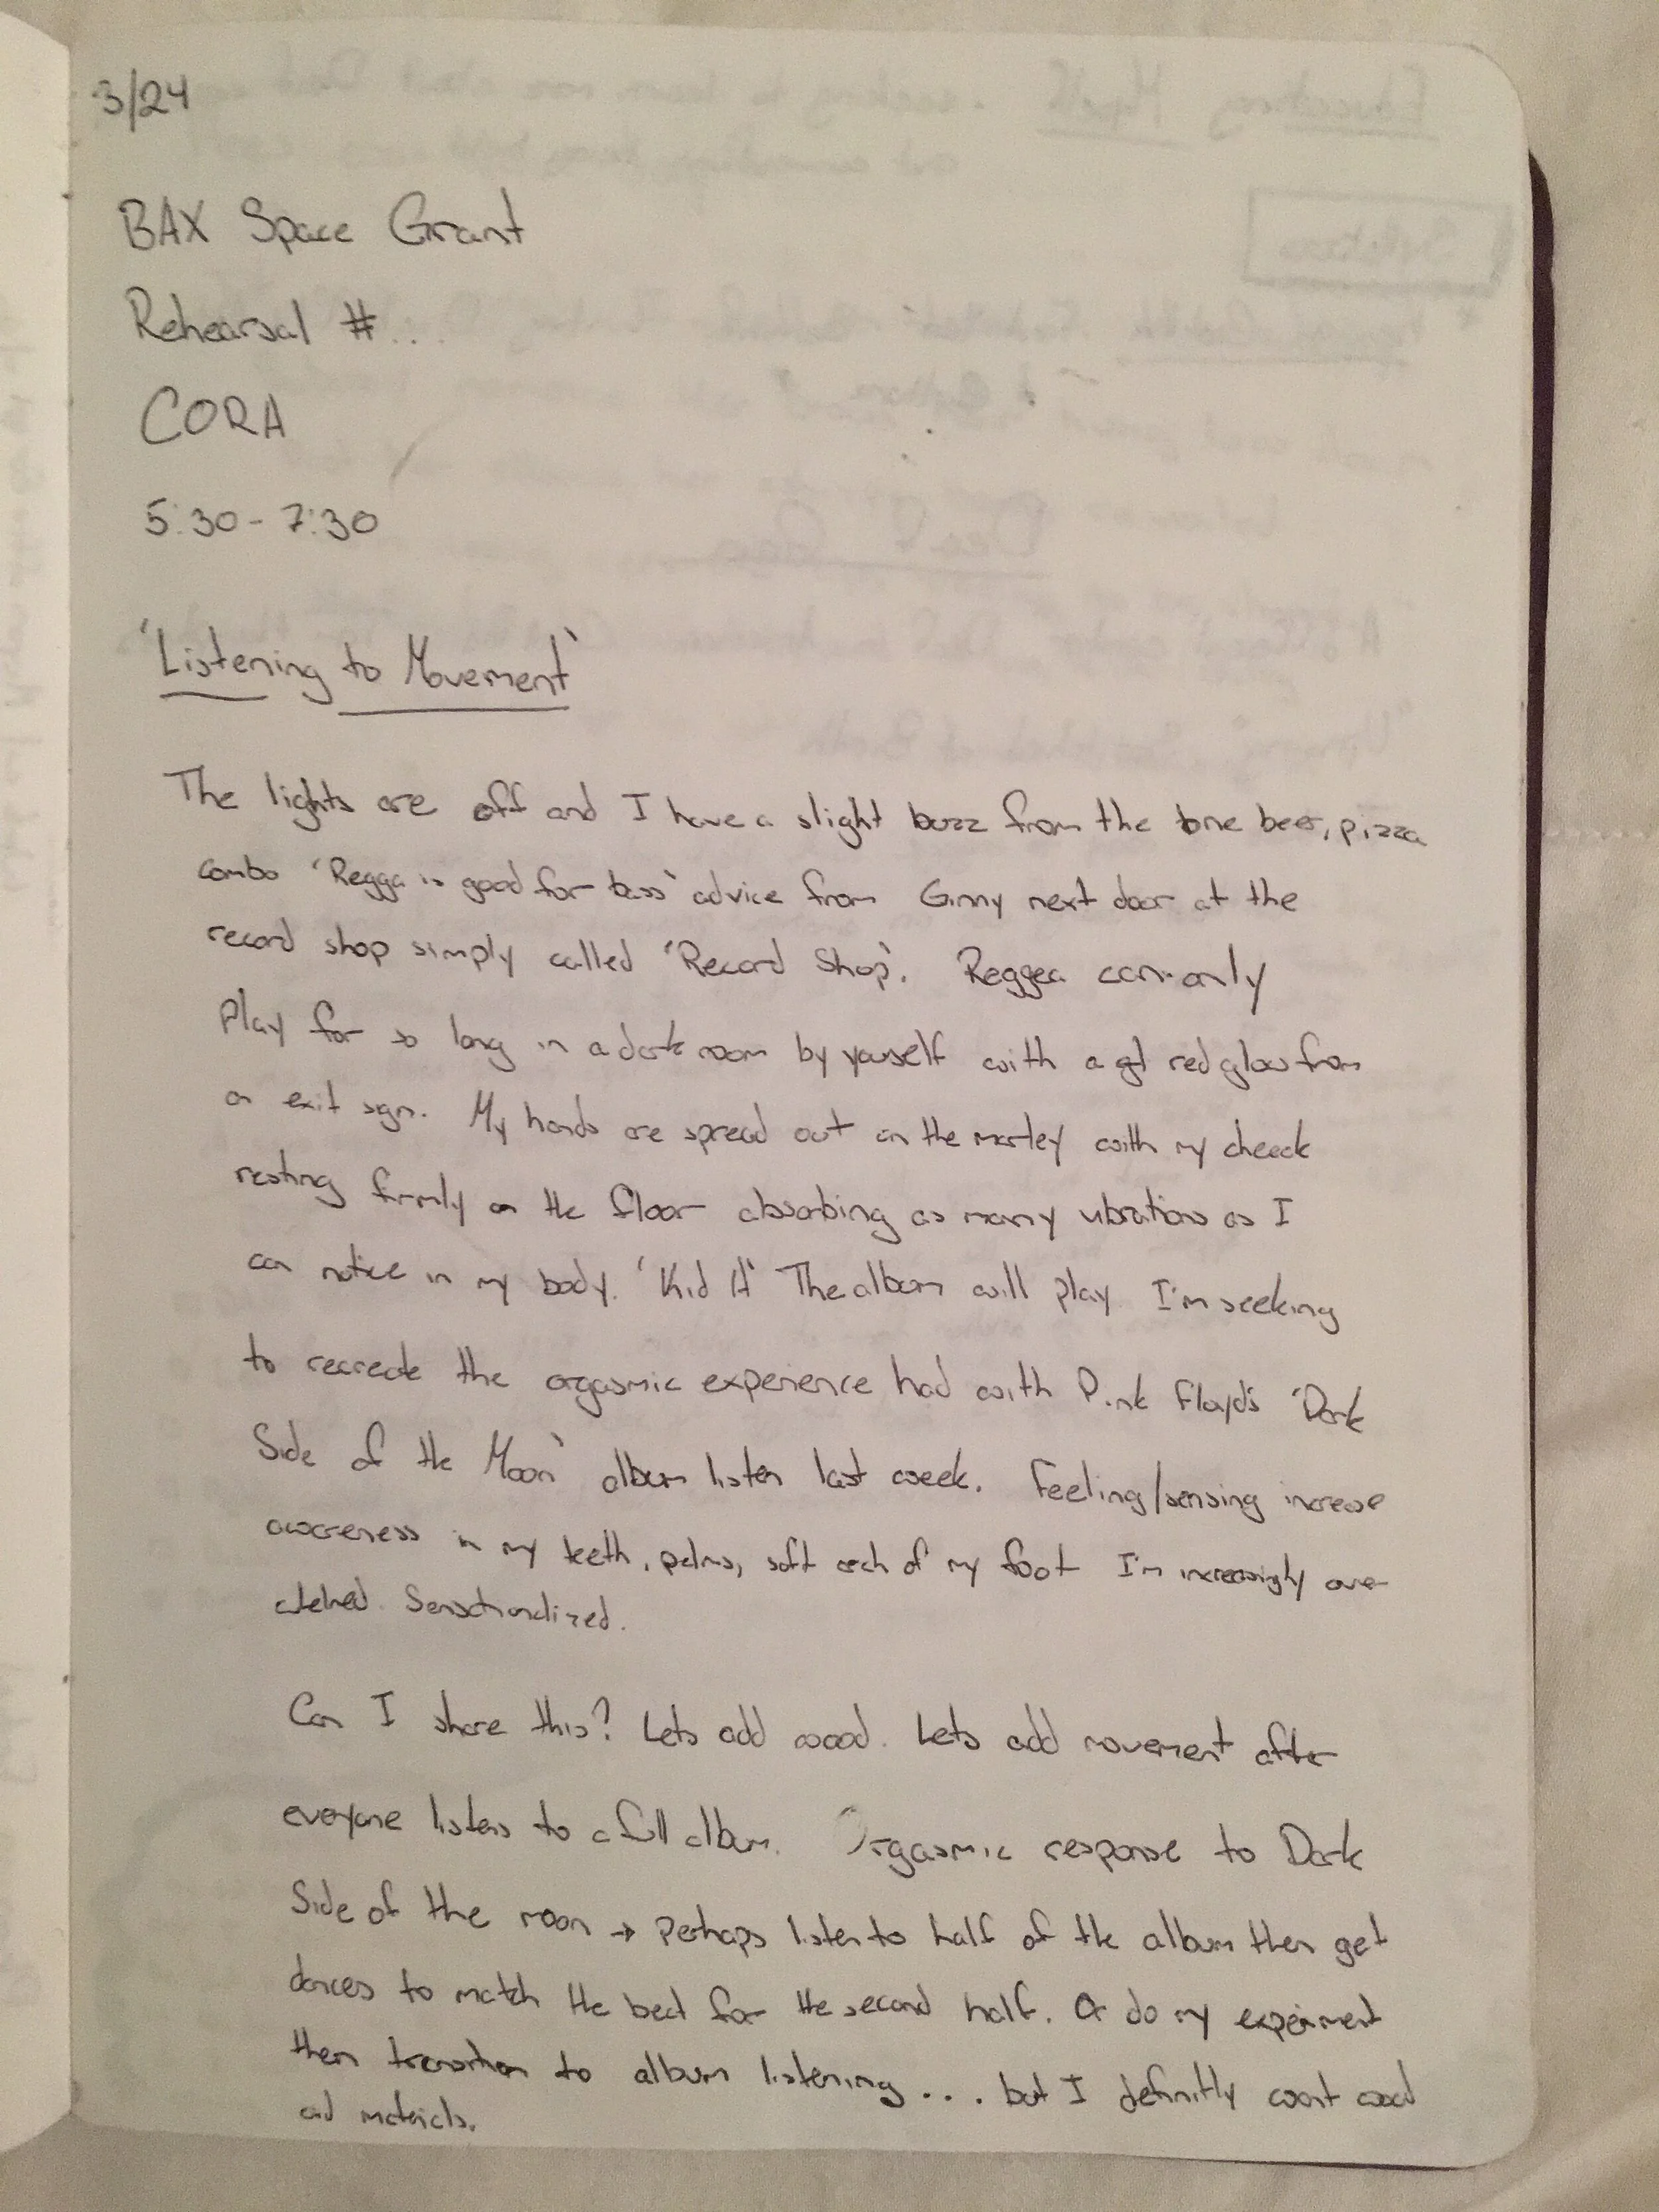 3/24
BAX Space Grant
Rehearsal #...
CORA
5:30 - 7:30
'Listening to Movement'
The lights are off and I have a slight buzz from the one beer, pizza
combo 'Regga is good for bass' advice from Ginny next door at the
record shop simply called 'Record Shop'. Reggea can only
Play for so long in a dark room by youself with a red glow from
an exit sign. My hands are spread out on the marley with my cheeck
resting firmly on the floor absorbing as many vibrations as I
can notice in my body. 'Kid A' The album will play. I'm seeking
to recreate the orgasmic experience had with Pink Floyd's 'Dark
Side of the Moon' album listen last week. Feeling/sensing increase
awareness in my teeth, palms, soft arch of my foot I'm increasingly over-
whelmed. Sensationalized.
Can I share this? Lets add wood. Lets add movement after
everyone listens to a full album. Orgasmic response to Dark
Side of the moon → Perhaps listen to half of the album then get
dances to match the beat for the second half. Or do my experiment
then transition to album listening... but I definitly want wood
and materials.